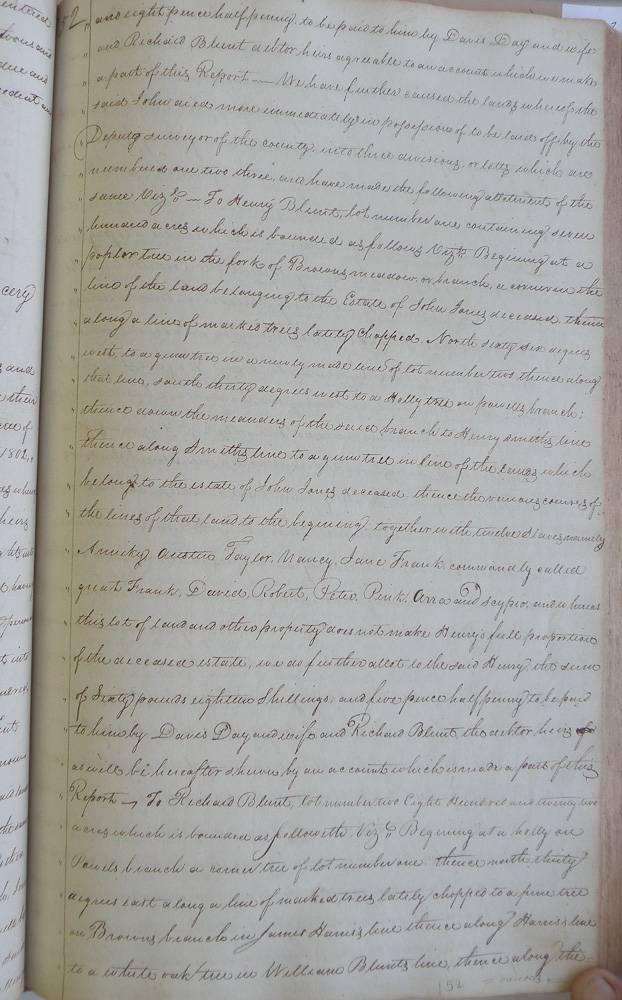 52
and eight pence half penny to be paid to him by Davis Day and wife
and Richard Blunt debtor heirs agreeable to an account which we make
a part of this Report — We have further caused the lands whereof the
said John died more immediately in possession of to be laid off by the
Deputy surveyor of the county, into three divisions, or lotts which are
numbered one two three, and have made the following allotment of the
same Vizt — To Henry Blunt, lot number one containing seven
hundred acres which is bounded as follows Vizt Begining at a
poplar tree in the fork of Browns meadow, or branch, a corner in the
line of the land belonging to the Estate of John Jones deceased thence
along a line of marked trees lately chapped, North sixty six degrees
west, to a gum tree in a newly made line of lot number two thence along
that line, south thirty degrees west to a Holly tree on powells branch;
thence down the meanders of the said branch to Henry Smiths line
thence along Smiths line to a gum tree in line of the lands which
belongs to the estate of John Jones deceased, thence the various courses of
the lines of that land to the begining, together with twelve slaves namely
Anniky Austin Taylor, Nancy, Jane Frank commonly called
great Frank, David, Robert, Peter, Penk, Arra and Scypio, and whereas
this lot of land and other property does not make Henry's full proportion
of the deceased estate, we do further allot to the said Henry, the sum
of Sixty pounds eighteen Shillings, and five pence half penny to be paid
to him by Davis Day and wife and Richard Blunt the debtor heirs
as will be hereafter shewn by an account which is made a part of this
Report — To Richard Blunt, lot number two Eight Hundred and twenty two
acres which is bounded as followeth Vizt Begining at a holly on
Powels branch a corner tree of lot number one thence north thirty
degrees east along a line of marked trees lately chopped to a pine tree
on Browns branch in James Harriss line thence along Harriss line
to a white oak tree in William Blunts line, thence along the
152